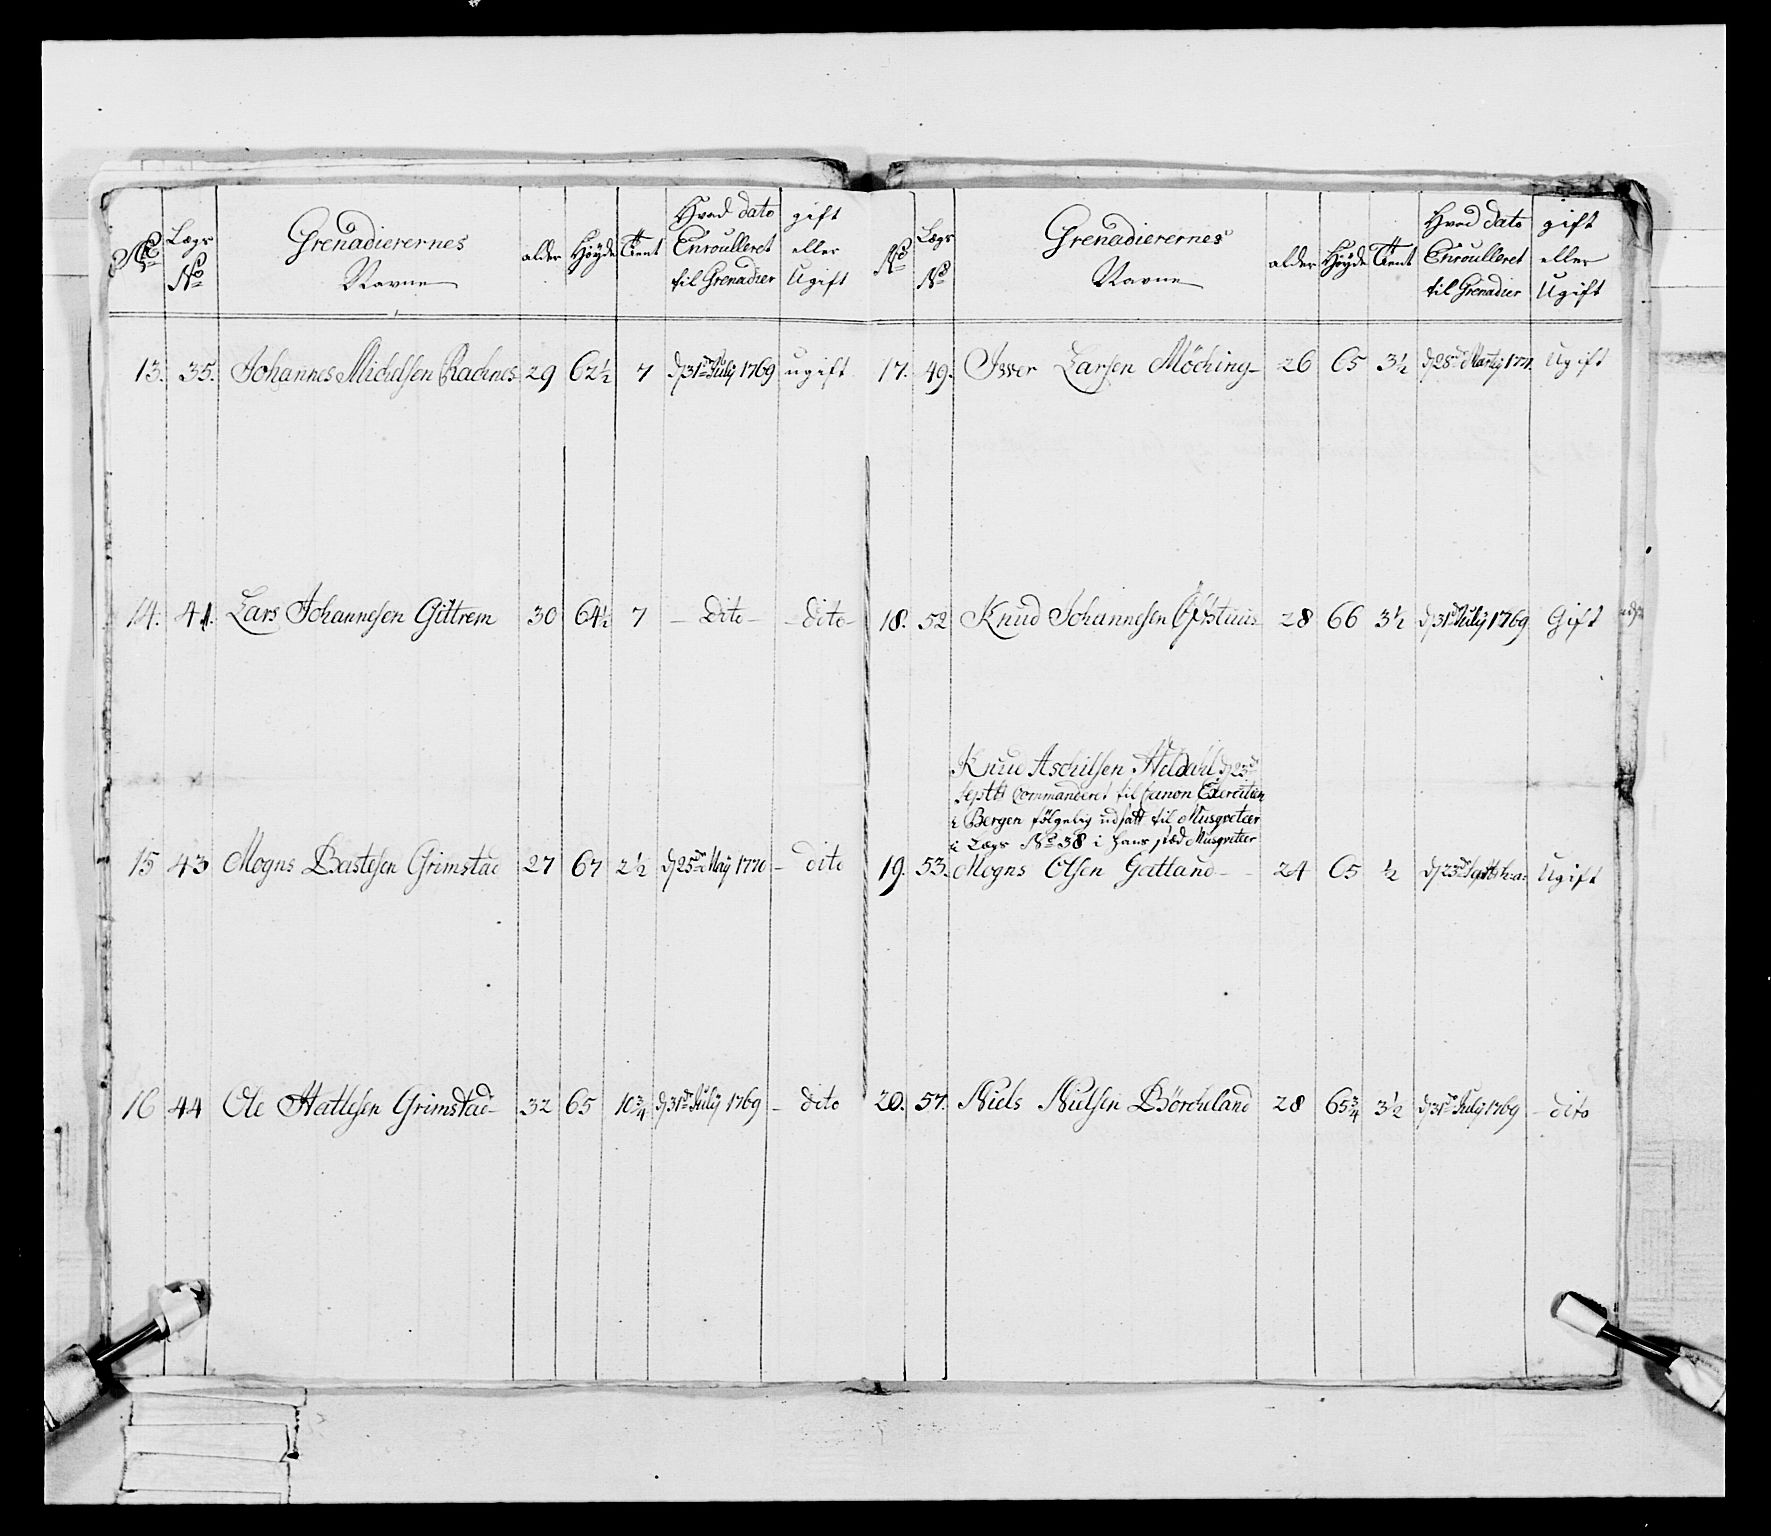 No
Lægs No
Grenadierernes Navne
alder
Höyde
tient
Hvad dato Enroulleret til Grenadier
gift eller Ugift
13. 35. Johannes Michelsen Rachnes 29 62½ 7 d 31te July 1769 ugift
14. 41. Lars Johannesen Gittrem 30 64½ 7 – dito – – dito –
15 43 Mogns Bastesen Grimstad 27 67 2½ d 25de May 1770 – dito
16 44 Ole Hattesen Grimstad – 32 65 10¾ d 31te July 1769 – dito
No
Lægs No
Grenadierernes Navne
alder
Höyde
tient
Hvad dato Enroulleret til Grenadier
gift eller Ugift
17. 49. Iwer Larsen Möching – 26 65 3½ d 28de Martij 177 Ugift
18. 52 Knud Johannesen 28 66 3½ d 31te July 1769 Gift
Knud Aschilsen d 23de
Septbr Commanderet til Canon Exercitien
i Bergen fölgelig udsatt til Musqveteer
i Lægs No 38 i hans stæd Musqveteer
19. 53. Mogns Olsen Gatland – – 24 65 ½ d 23de Septbr h: a: Ugift
20. 57. Niels Nielsen Börcheland 28 65¾ 3½ d 31te July 1769 – dito